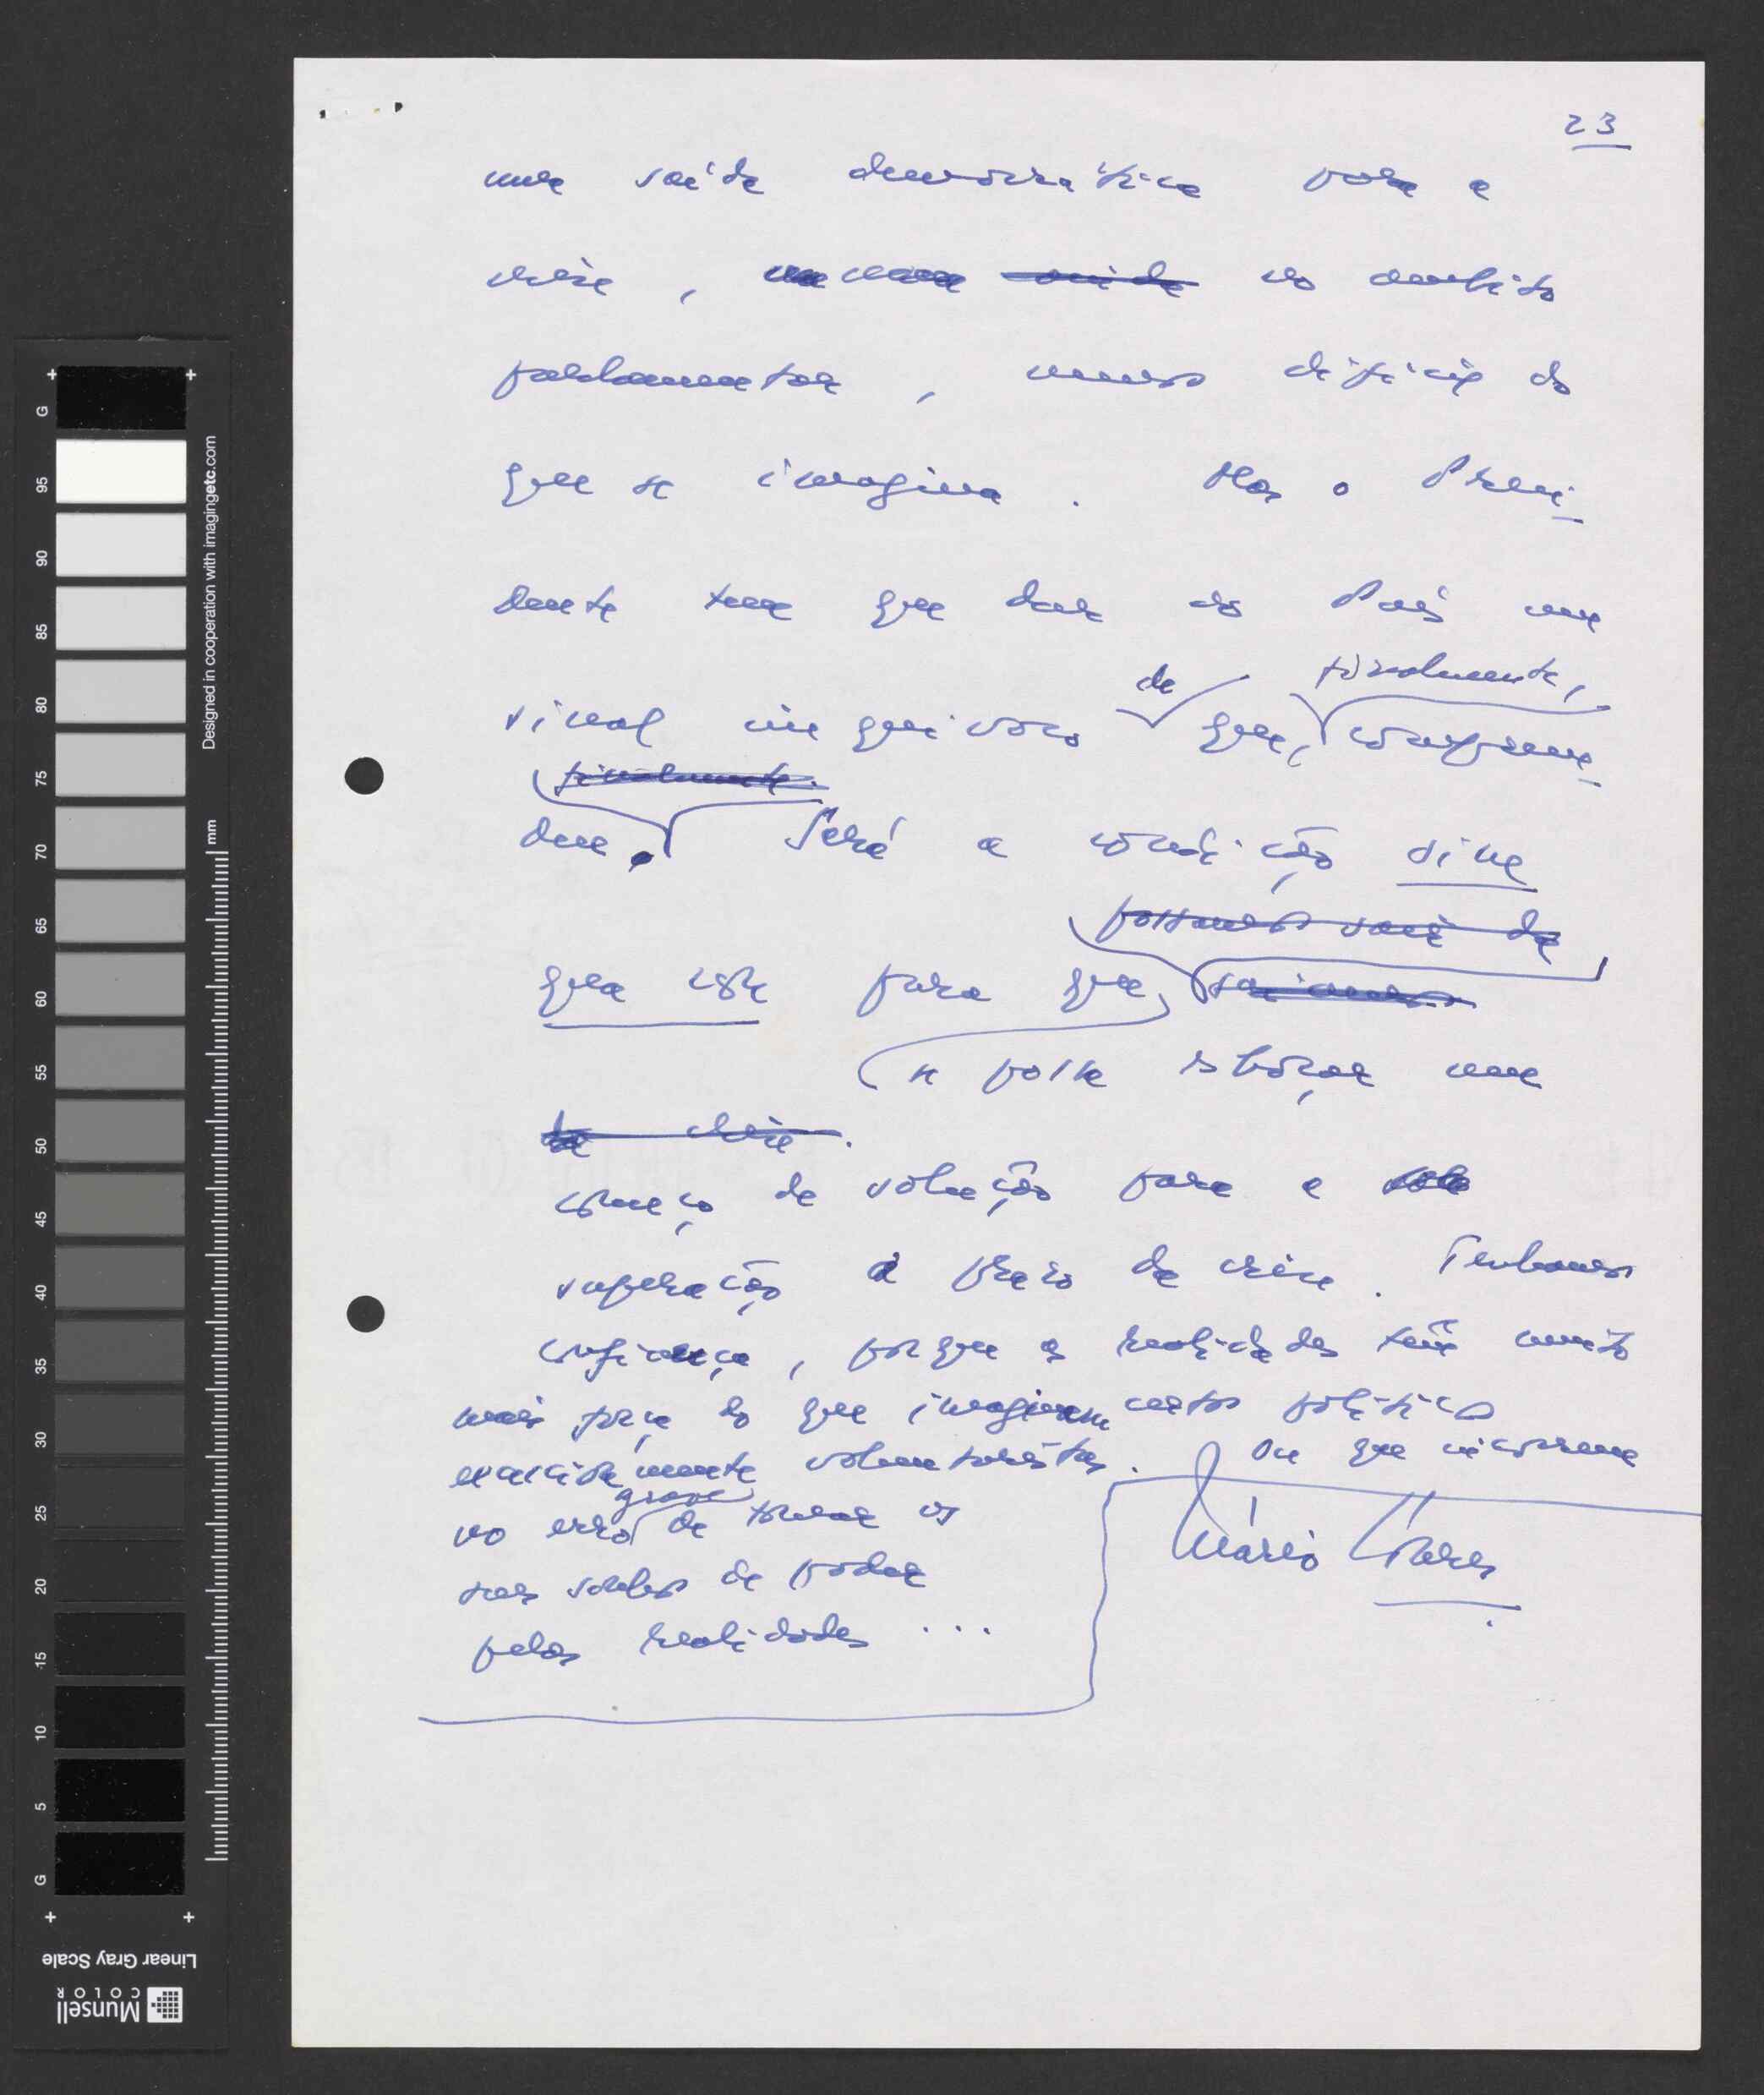 23
uma saída democrática para a
crise, no âmbito
parlamentar, menos difícil do
que se imagina. Mas o Presi-
dente tem que dar ao País um
sinal inequívoco de que, finalmente, compreen-
deu. Será a condição sine
finalmente.
qua non para que,
possamos sair da
saiamos
se possa esboçar um
da crise.
começo de solução para a
superação a prazo da crise. Tenhamos
confiança, porque as realidades têm muito
mais força do que imaginam certos políticos
excessivamente voluntaristas. Ou que incorrem
no erro grave de tomar os
seus sonhos de poder
pelas realidades...
Mário Soares
Designed in cooperation with imagingetc.com
mm
G
95
90
85
80
75
70
65
60
55
50
45
40
35
30
25
20
15
10
5
G
Linear Gray Scale
Munsell
COLOR